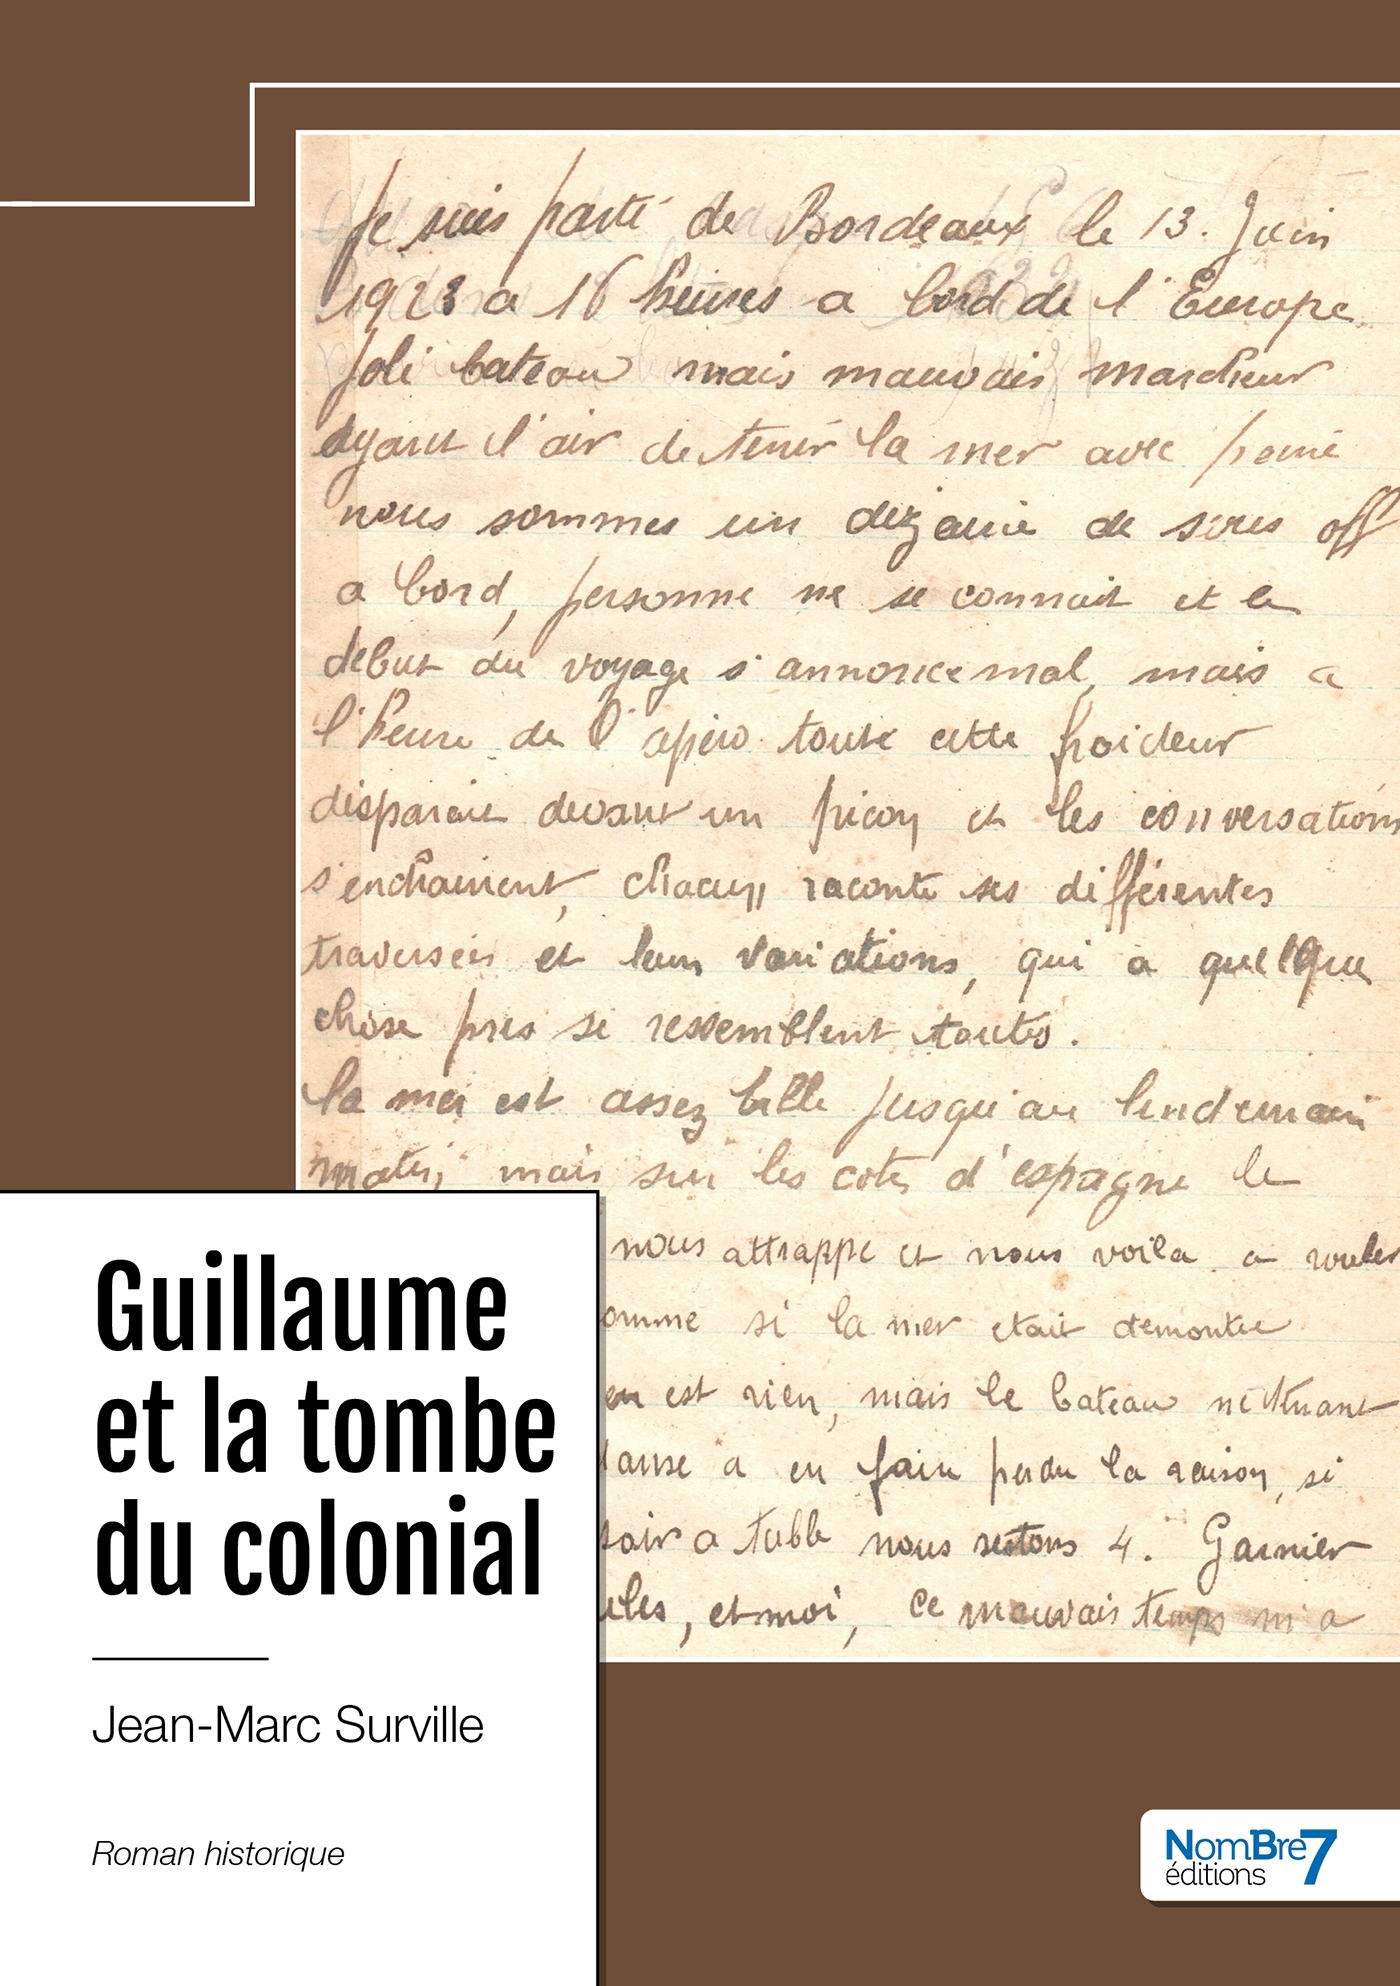 Je suis parti de Bordeaux le 13. Juin
1923 a 16 heures a bord de l'Europe
Joli bateau mais mauvais marcheur
ayant l'air de tenir la mer avec peine
nous sommes un dizaine de sous off
a bord, personne ne se connait et le
debut du voyage s'annonce mal, mais a
l'heure de l'apero toute cette froideur
disparait devant un picon et les conversations
s'enchainent, chacun raconte ses différentes
traversées et leurs variations, qui a quelque
chose pres se ressemblent toutes.
la mer est assez belle jusqu'au lendemain
matin, mais sur les cotes d'espagne le
nous attrappe et nous voila a rouler
omme si la mer etait demontee
en est rien, mais le bateau
danse a en faire perdre la raison, si
soir a table nous restons 4. Garnier
ules, et moi, ce mauvais temps m'a
Guillaume
et la tombe
du colonial
Jean-Marc Surville
Roman historique
NomBre7
éditions